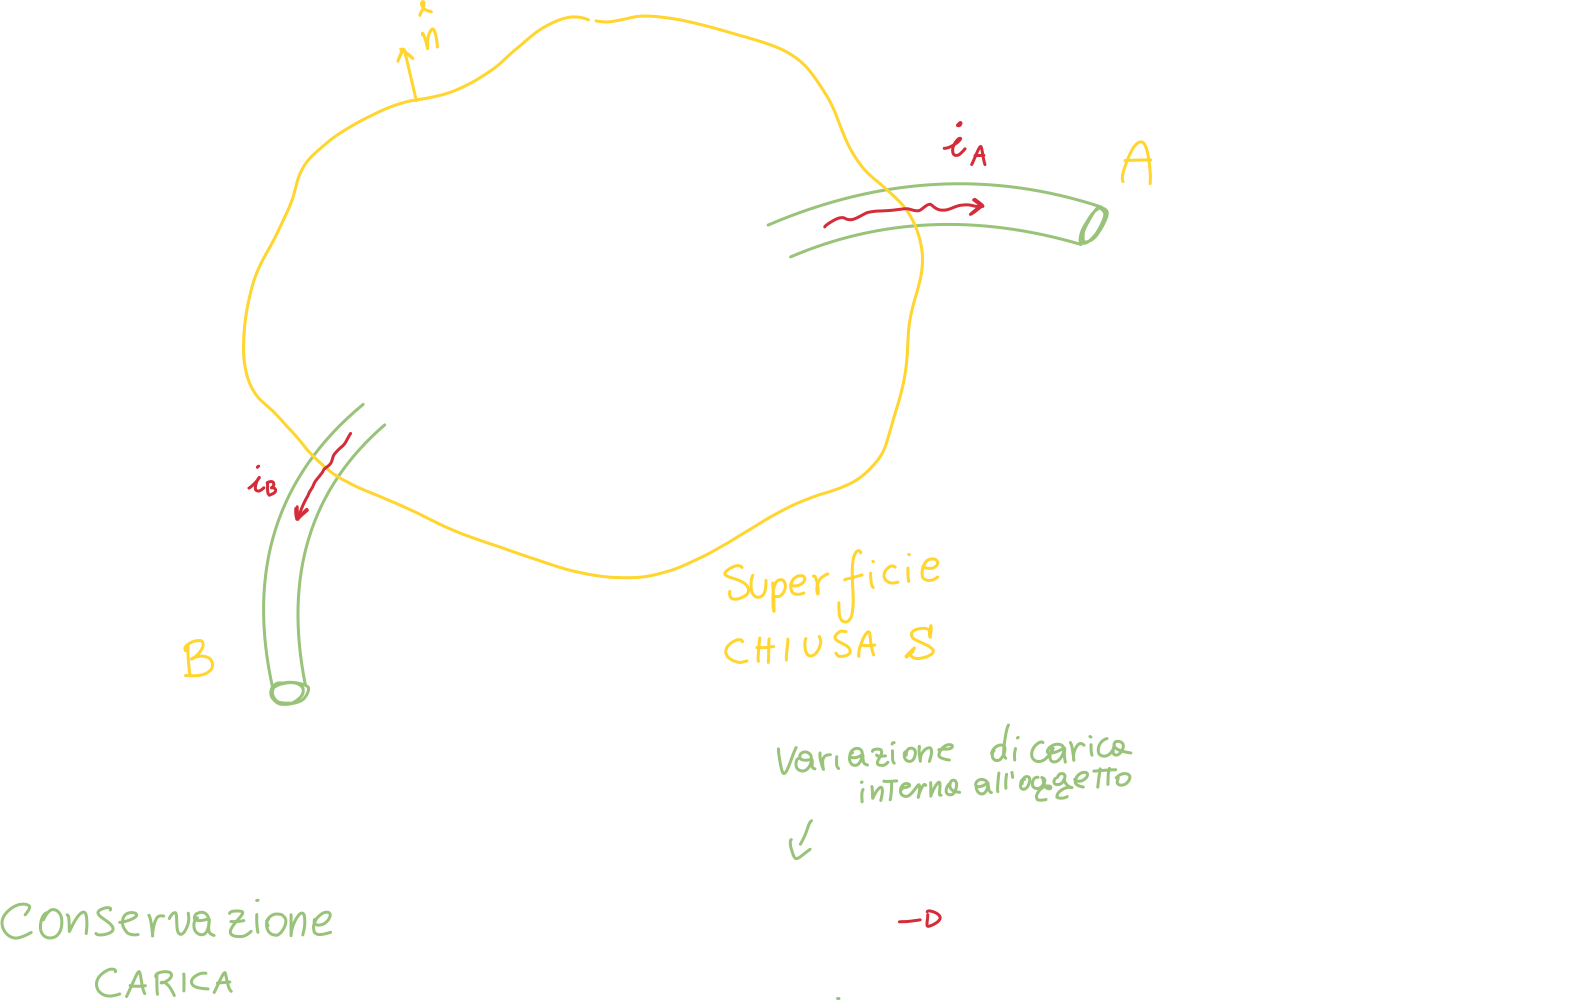 n̂
i_A
A
i_B
Superficie
CHIUSA S
B
Variazione di carica
interna all'oggetto
Conservazione
CARICA